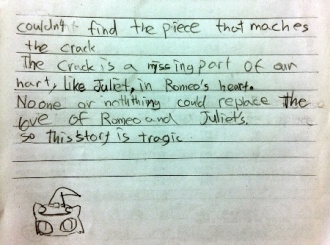 couldn't find the piece that maches
the crack
The crack is a missing part of our
hart, like Juliet, in Romeo's heart.
No one or noththing could replace the
love of Romeo and Juliet's.
so this story is tragic